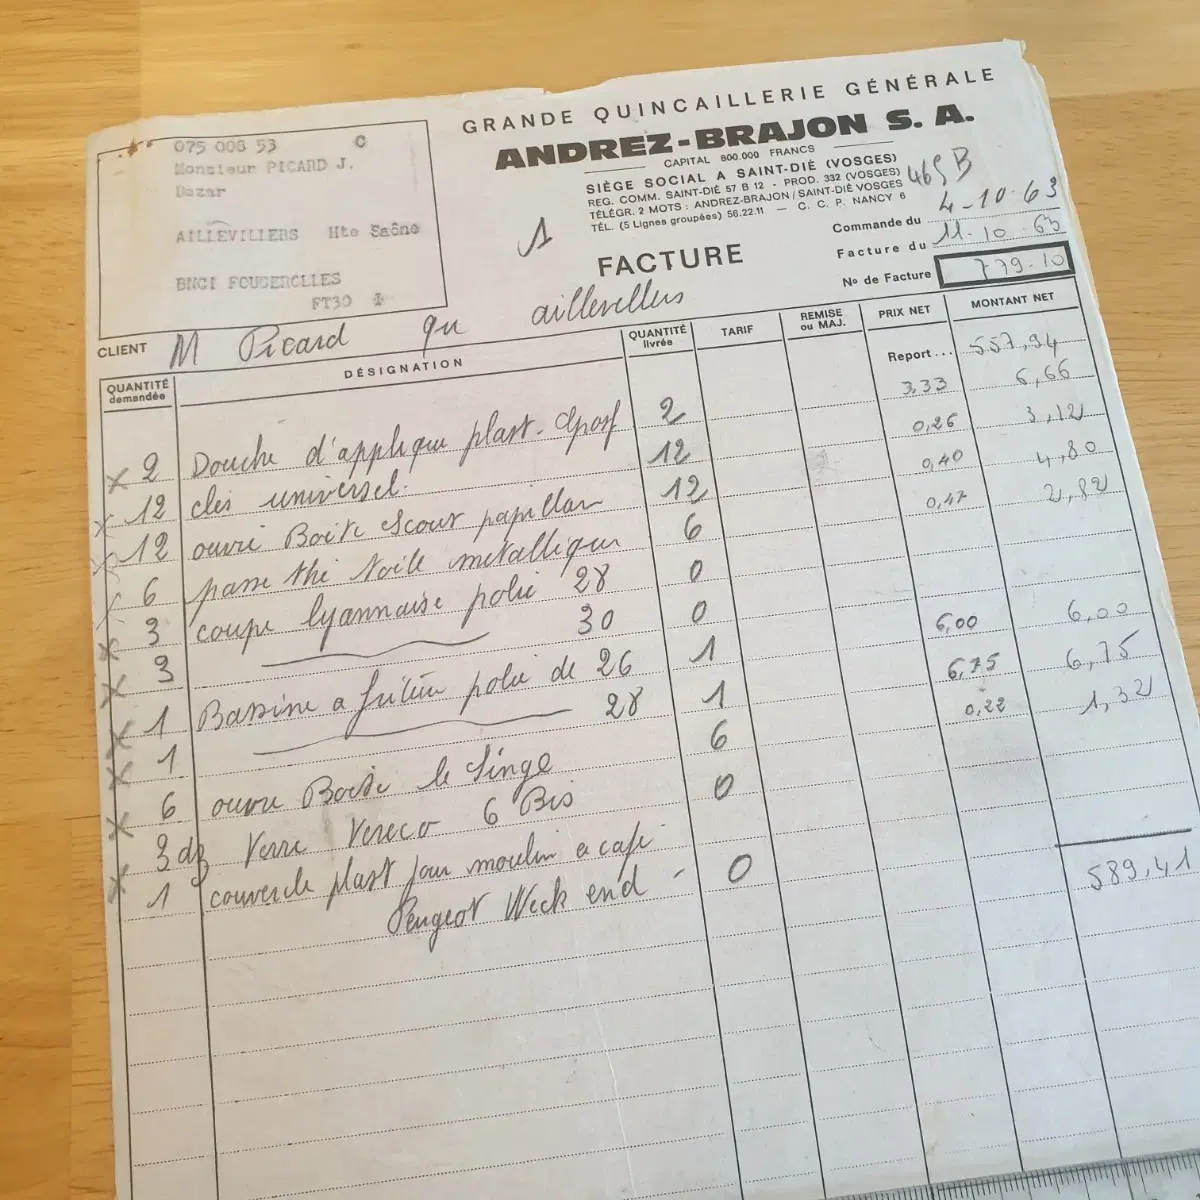 GRANDE QUINCAILLERIE GÉNÉRALE
ANDREZ-BRAJON S. A.
CAPITAL 800.000 FRANCS
SIÈGE SOCIAL A SAINT-DIÉ (VOSGES)
REG. COMM. SAINT-DIÉ 57 B 12 - PROD. 332 (VOSGES)
TÉLÉGR. 2 MOTS : ANDREZ-BRAJON / SAINT-DIÉ VOSGES
TÉL. (5 Lignes groupées) 56.22.11 — C. C. P. NANCY 6
075 008 53 C
Monsieur PICARD J.
Bazar
AILLEVILLERS Hte Saône
BNCI FOUGEROLLES
FT30 1
1
FACTURE
Commande du 4-10-63
Facture du 11-10-63
No de Facture 779-10
CLIENT M Picard qu aillevellers
QUANTITÉ demandée DÉSIGNATION QUANTITÉ livrée TARIF REMISE ou MAJ. PRIX NET MONTANT NET
Report... 557,94
x 2 Douche d'applique plast. 2 3,33 6,66
x 12 clés universel. 12 0,26 3,12
x 12 ouvre Boite Scout papillon 12 0,40 4,80
x 6 passe thé toile metallique 6 0,47 2,82
x 3 coupe lyonnaise polie 28 0
x 3 30 0
x 1 Bassine a friture polie de 26 1 6,00 6,00
x 1 28 1 6,75 6,75
x 6 ouvre Boite le Singe 6 0,22 1,32
3 dz Verre Vereco 6 Bis 0
x 1 couvercle plast pour moulin a café
Peugeot Week end - 0
589,41